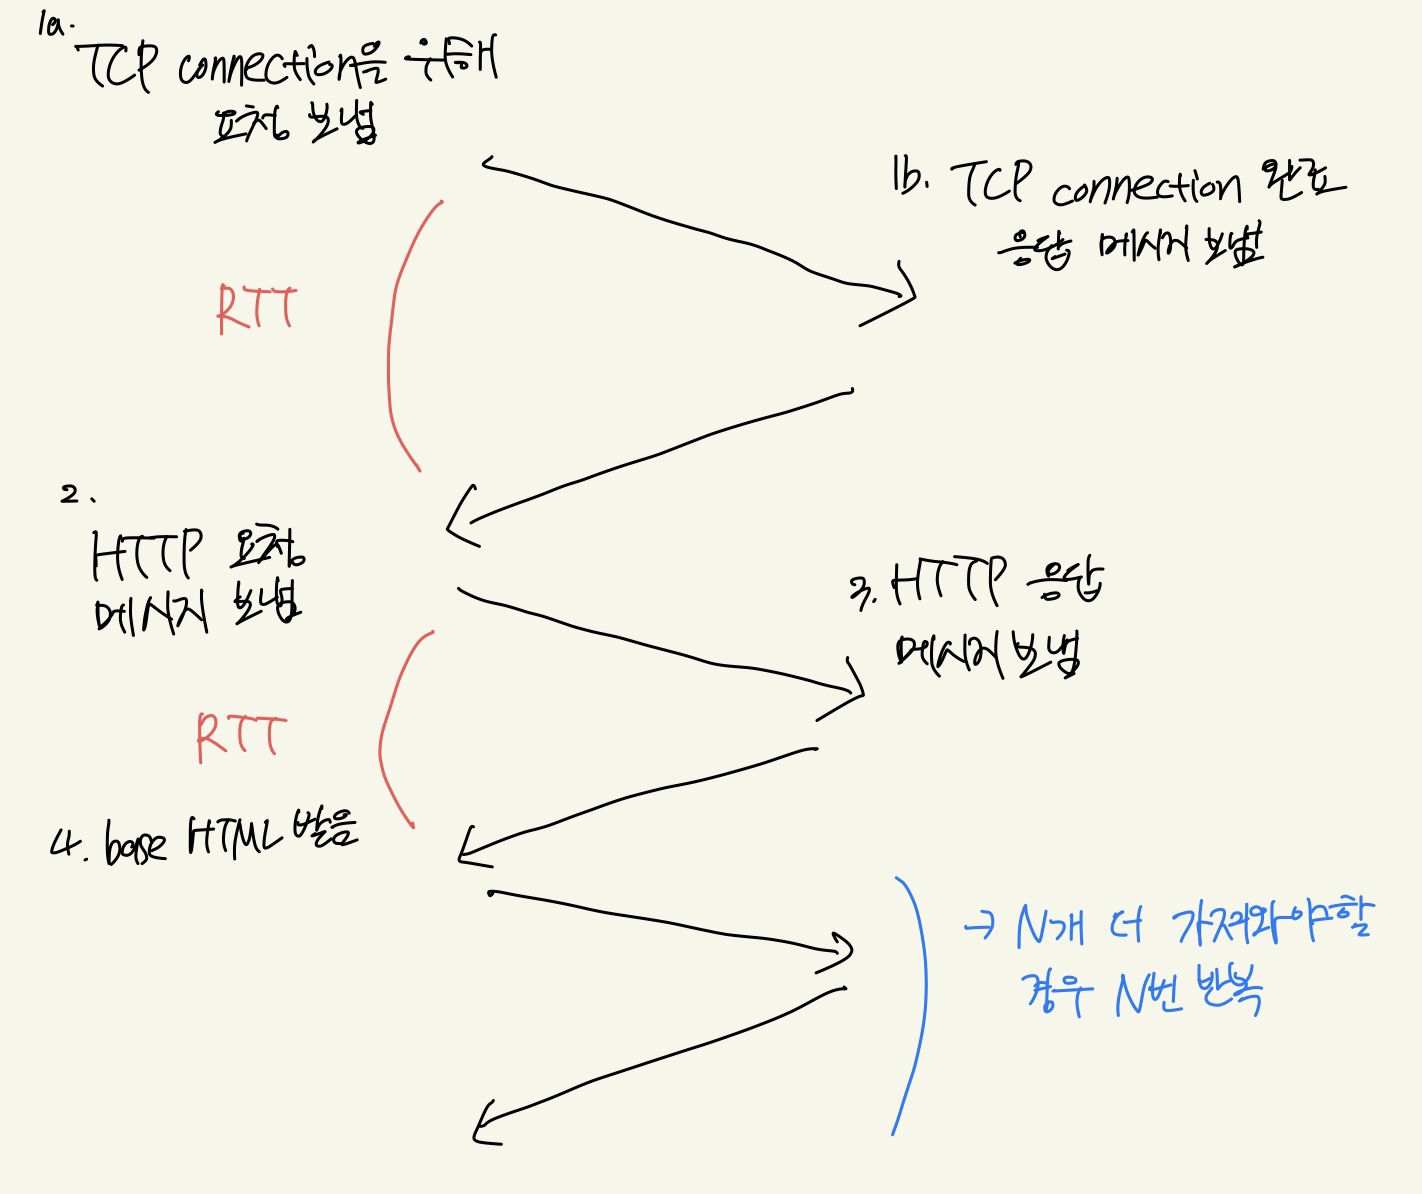 1a.
TCP connection을 위해
요청 보냄
1b. TCP connection 완료
응답 메시지 보냄
RTT
2.
HTTP 요청
메시지 보냄
3. HTTP 응답
메시지 보냄
RTT
4. base HTML 받음
→ N개 더 가져와야할
경우 N번 반복